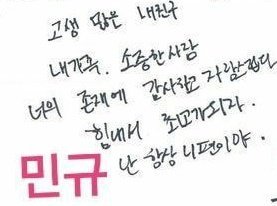 고생 많은 내친구
내가족. 소중한사람
너의 존재에 감사하고 자랑스럽다
힘내서 최고가되자.
민규 난 항상 니편이야.